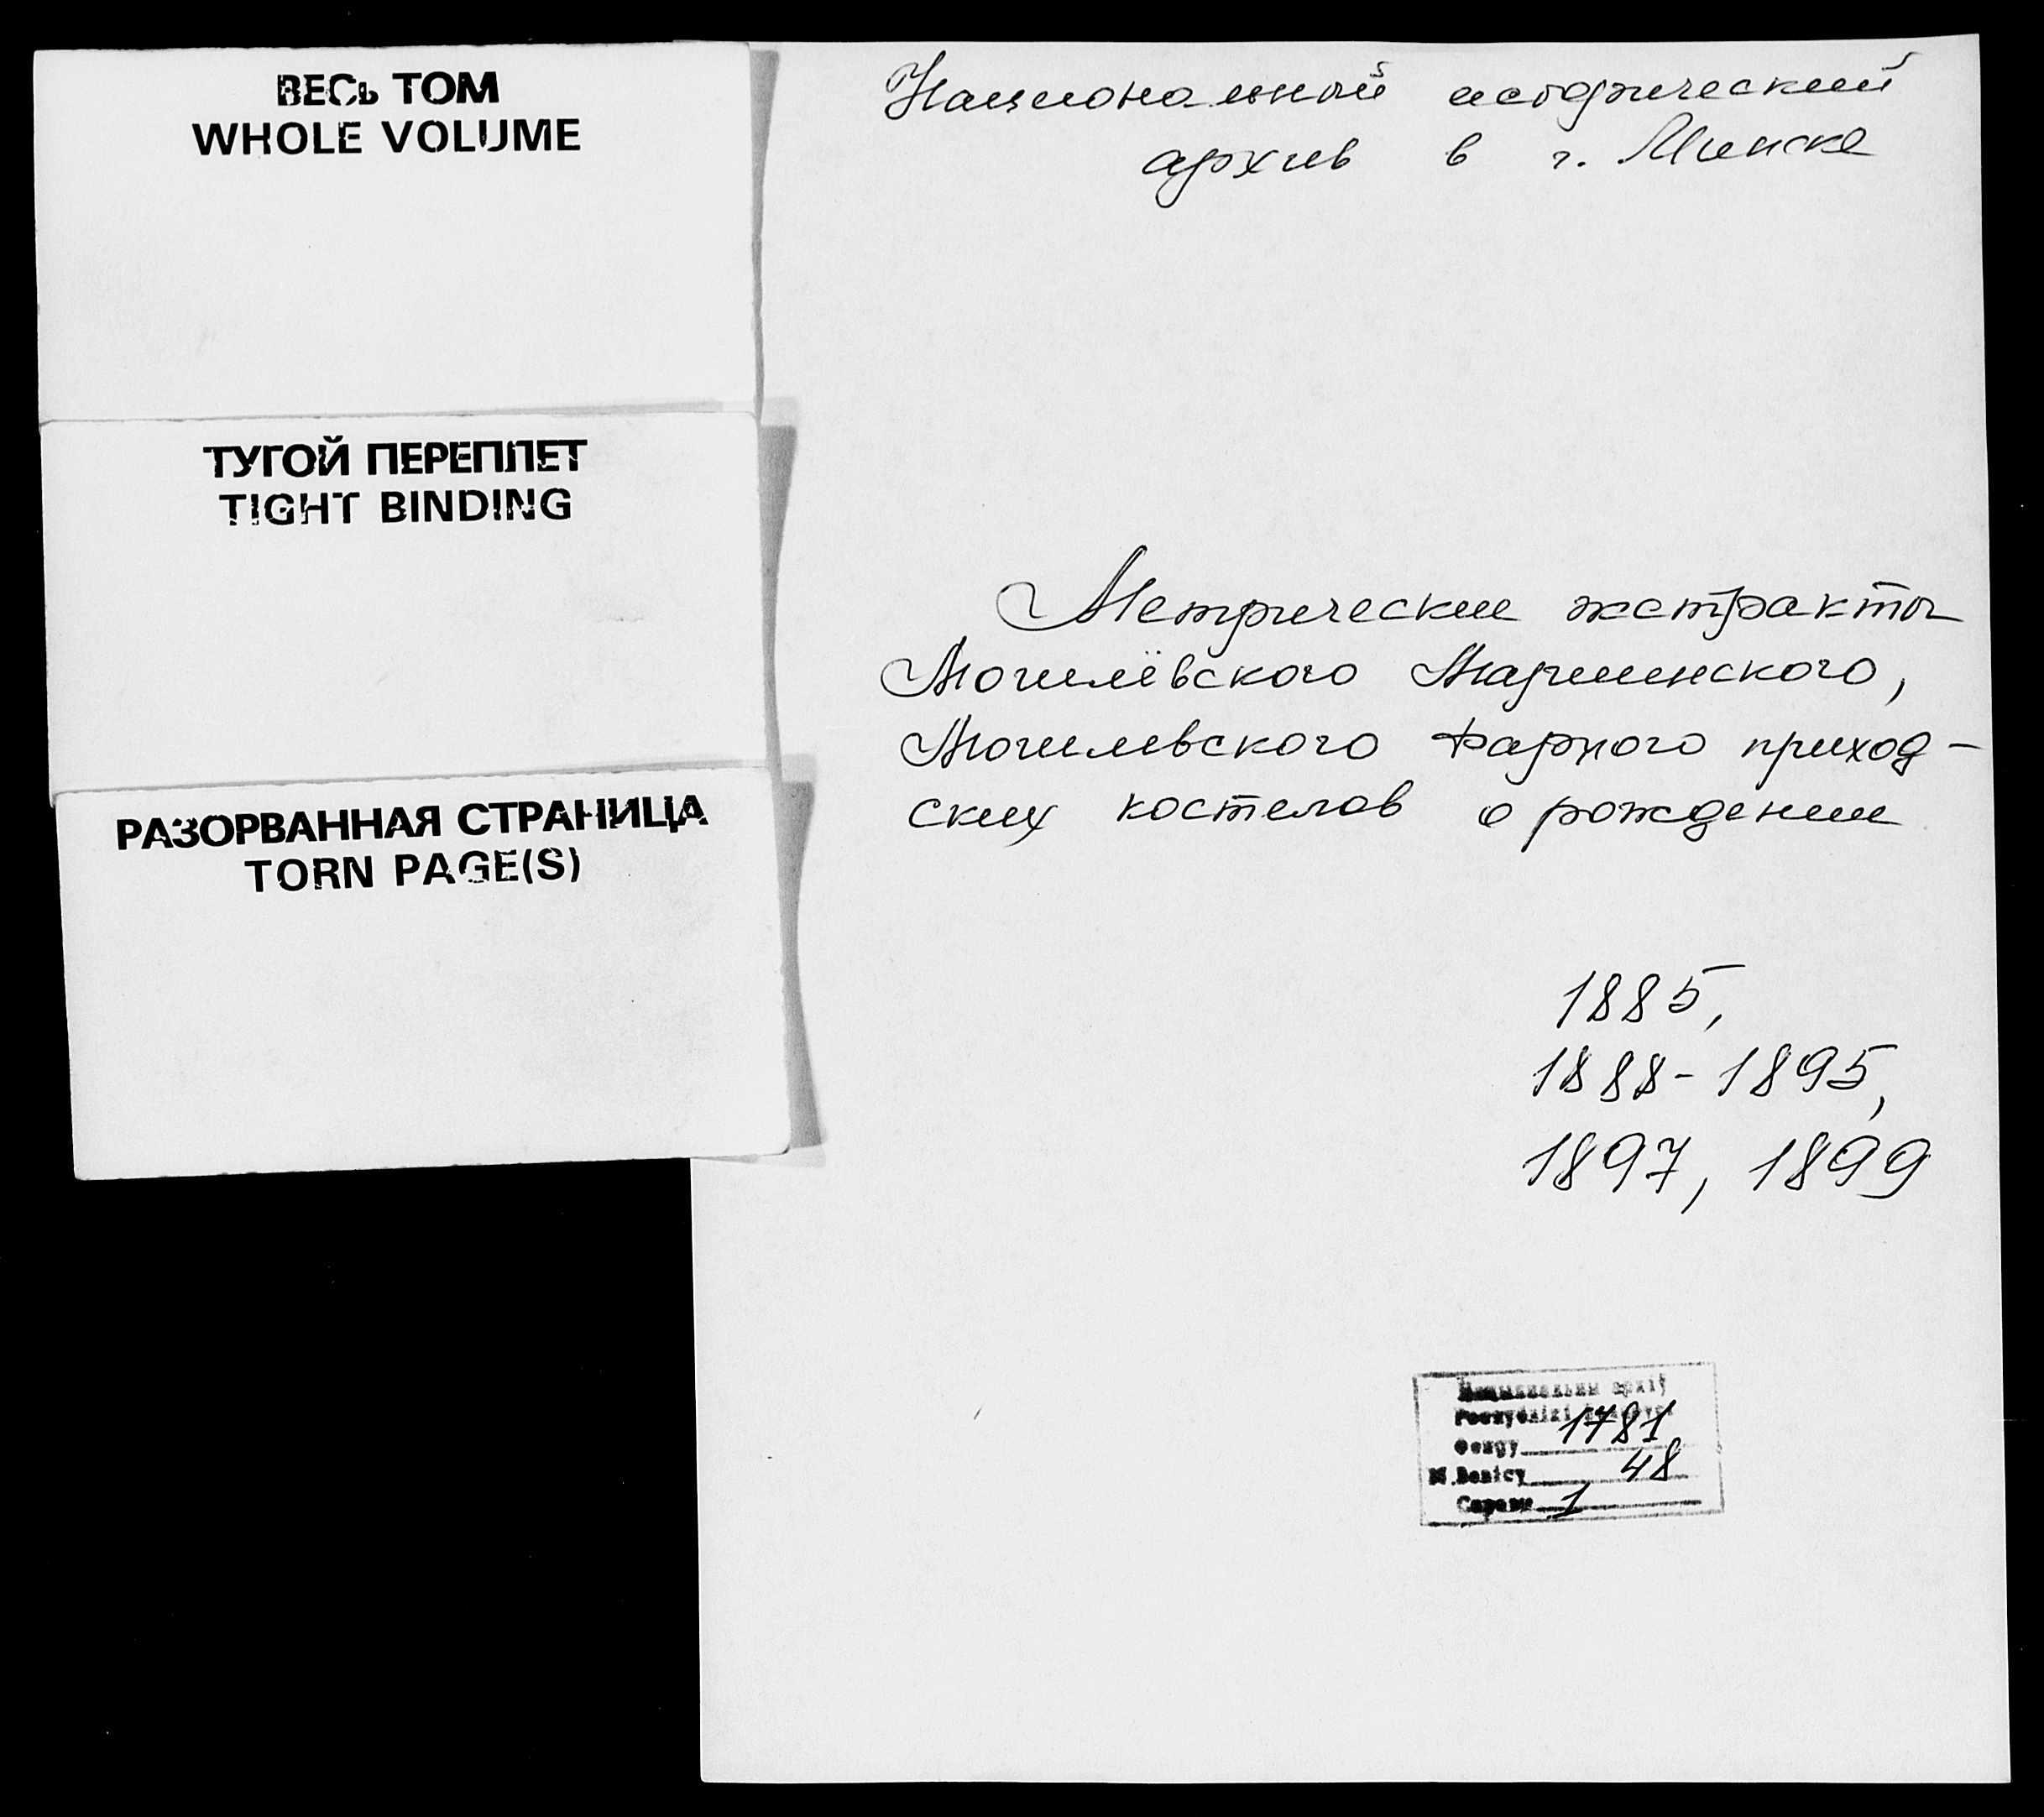 ВЕСЬ ТОМ
WHOLE VOLUME
ТУГОЙ ПЕРЕПЛЕТ
TIGHT BINDING
РАЗОРВАННАЯ СТРАНИЦА
TORN PAGE(S)
Национальный исторический
архив в г. Минске
Метрические экстракты
Могилёвского Мариинского,
Могилевского Фарного приход-
ских костелов о рождении
1885,
1888-1895,
1897, 1899
Нацыянальны архіў
Рэспублікі Беларусь
Фонду 1781
№ Вопісу 48
Справы 1